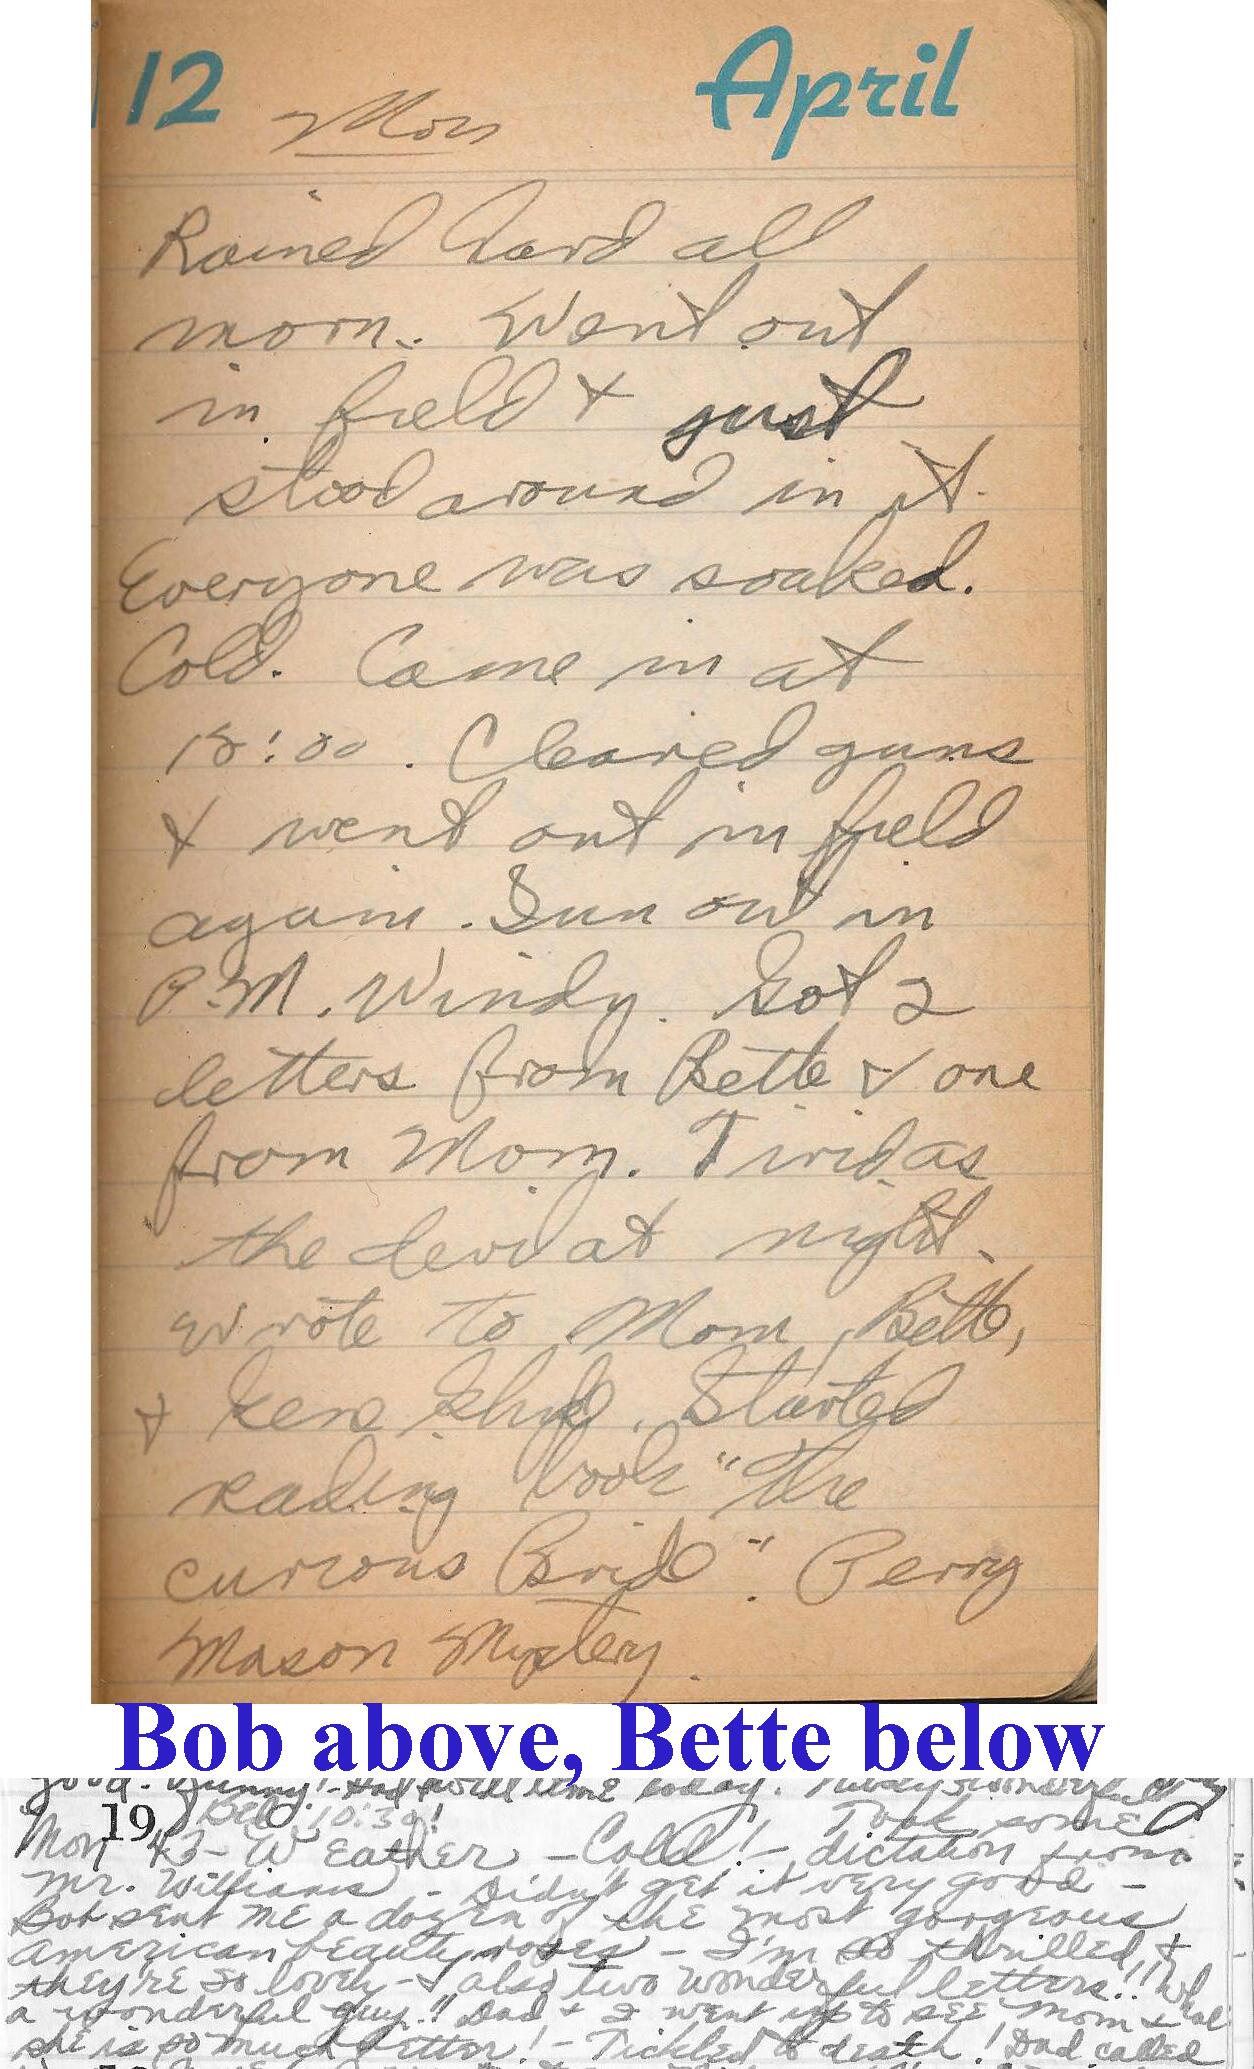 12 Mon April
Rained hard all
morn. Went out
in field & just
stood around in it.
Everyone was soaked.
Cold. Came in at
15:00. Cleaned guns
& went out in field
again. Sun out in
P.M. Windy. Got 2
letters from Bette & one
from Mom. Tired as
the devil at night.
Wrote to Mom, Bette,
& Gene. Started
reading book "The
curious Bride". Perry
Mason Mystery.
Bob above, Bette below
good. Dad time today.
Bed 10:30!
Mon 1943 - Weather - Cold! - Took some dictation from
Mr. Williams - Didn't get it very good -
Bob sent me a dozen of the most gorgeous
american beauty roses - I'm so thrilled, &
they're so lovely - & also two wonderful letters!! What
a wonderful guy!! Dad & I went up to see Mom &
she is so much better! - Tickled to death! Dad called